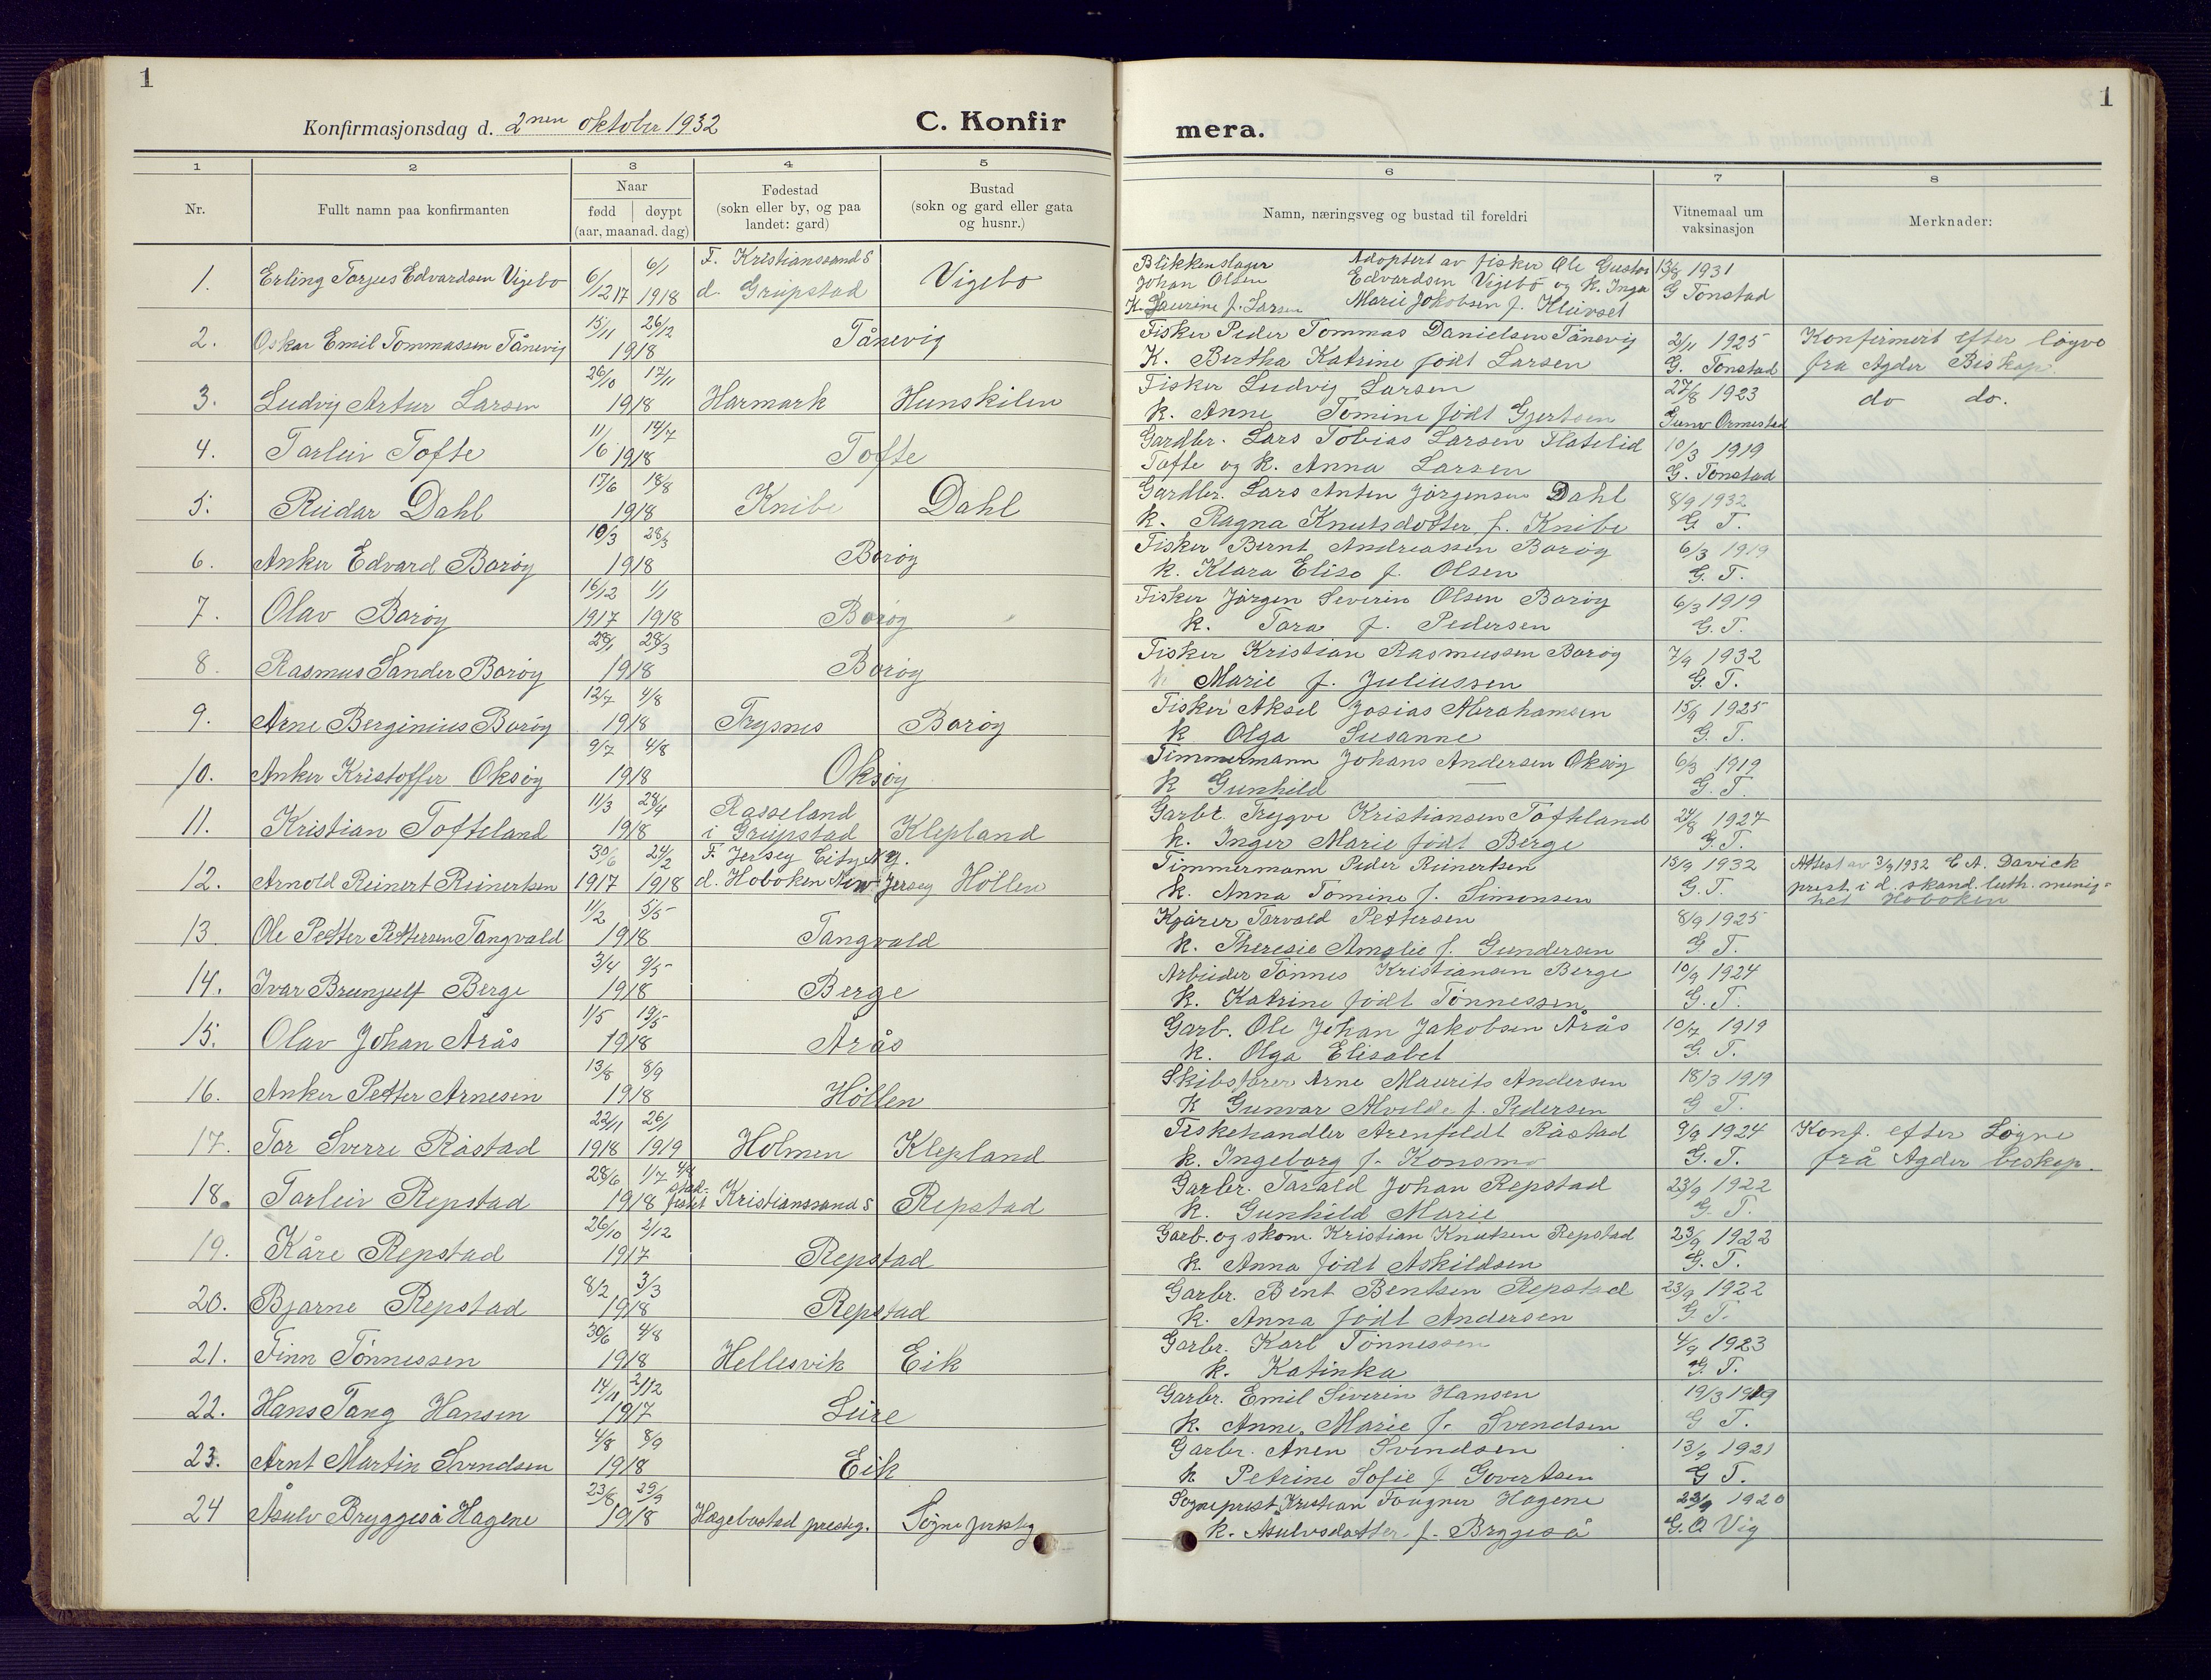 1
Konfirmasjonsdag d. 2nen oktober 1932
C. Konfir
mera.
1
1 2 3 4 5 6 7 8
Nr.
Fullt namn paa konfirmanten
Naar
fødd døypt
(aar, maanad. dag)
Fødestad
(sokn eller by, og paa
landet: gard)
Bustad
(sokn og gard eller gata
og husnr.)
Namn, næringsveg og bustad til foreldri
Vitnemaal um
vaksinasjon
Merknader:
1. Erling Torjus Edvardsen Vigebo 6/12 17 6/1 1918 F. Kristianssand S Vigebo
d. Grupstad
Blikkenslager Adoptert av fisker Ole Gustav 13/8 1931
Johan Olsen Edvardsen Vigebo og k. Inga G Tonstad
K. Laurine f. Larsen Marie Jakobsen f. Kleivset
2. Oskar Emil Tommassen Tånevig 15/11 26/12 1918 Tånevig
Fisker Peder Tommas Danielsen Tånevig 2/11 1925 Konfirmert efter løyve
K. Bertha Katrine født Larsen G. Tonstad fra Agder Biskop.
3. Ludvig Artur Larsen 26/10 17/11 1918 Harmark Hunskilen
Fisker Ludvig Larsen 27/8 1923 do do.
k. Anne Tomine født Gjertsen Gunv Ormestad
4. Torleiv Tofte 11/6 14/7 1918 Tofte
Gardbr. Lars Tobias Larsen Flatelid 10/3 1919
Tofte og k. Anna Larsen G. Tonstad
5. Reidar Dahl 17/6 18/8 1918 Knibe Dahl
Gardbr. Lars Anten Jørgensen Dahl 8/9 1932
k. Ragna Knutsdotter f. Knibe G. T.
6. Anker Edvard Borøy 10/3 28/3 1918 Borøy
Fisker Bernt Andreassen Borøy 6/3 1919
k. Klara Elise f. Olsen G. T.
7. Olav Borøy 16/12 1917 1/1 1918 Borøy
Fisker Jørgen Severin Olsen Borøy 6/3 1919
k. Tora f. Pedersen G. T.
8. Rasmus Sander Borøy 28/1 28/3 1918 Borøy
Fisker Kristian Rasmussen Borøy 7/9 1932
k Marie f. Juliussen G. T.
9. Arne Berginius Borøy 12/7 4/8 1918 Trysnes Borøy
Fisker Aksel Josias Abrahamsen 15/9 1925
k Olga Susanne G. T.
10. Anker Kristoffer Oksøy 9/7 4/8 1918 Oksøy
Timmermann Johans Andersen Oksøy 6/3 1919
k Gunhild — G. T.
11. Kristian Tofteland 11/3 28/4 1918 Rasseland
i Grupstad Klepland
Garbr. Trygve Kristiansen Tofteland 24/8 1927
k. Inger Marie født Berge G. T.
12. Arnold Reinert Reinertsen 30/6 1917 24/2 1918 F. Jersey City N.Y.
d. Hoboken New Jersey Høllen
Timmermann Peder Reinertsen 15/9 1932 Attest av 3/9 1932 C A. Davick
k. Anna Tomine f. Simonsen G. T. prest i d. skand. luth. menig-
het Hoboken
13. Ole Petter Pettersen Tangvald 11/2 5/5 1918 Tangvald
Kjører Torvald Pettersen 8/9 1925
k. Theresie Amalie f. Gundersen G. T.
14. Ivar Brunjulf Berge 3/4 9/5 1918 Berge
Arbeider Tønnes Kristiansen Berge 10/9 1924
k. Katrine født Tønnessen G. T.
15. Olav Johan Årås 1/5 19/5 1918 Årås
Garb. Ole Johan Jakobsen Årås 10/7 1919
k. Olga Elisabet G. T.
16. Anker Petter Arnesen 13/8 8/9 1918 Höllen
Skibsfører Arne Maurits Andersen 18/3 1919
K Gunvar Alvilde f. Pedersen G T.
17. Tor Sverre Råstad 22/11 1918 26/1 1919 Holmen Klepland
Fiskehandler Arenfeldt Råstad 9/9 1924 Konf. efter Løyve
k. Ingeborg f. Konsmo G. T. frå Agder biskop.
18. Torleiv Repstad 28/6 1/7 1918 Kristianssand S Repstad
Garbr. Tarald Johan Repstad 23/9 1922
k. Gunhild Marie G. T.
19. Kåre Repstad 26/10 2/12 1917 Repstad
Garb. og skom Kristian Knutsen Repstad 23/9 1922
k. Anna født Askildsen G. T.
20. Bjarne Repstad 8/2 3/3 1918 Repstad
Garbr. Bent Bentsen Repstad 23/9 1922
k. Anna født Andersen G T.
21. Finn Tønnessen 30/6 4/8 1918 Hellesvik Eik
Garbr. Karl Tønnessen 4/9 1923
k. Katinka G. T.
22. Hans Tang Hansen 14/11 2/12 1917 Leire
Garbr. Emil Severin Hansen 19/3 1919
k. Anne. Marie f. Svendsen G T.
23. Arnt Martin Svendsen 4/8 8/9 1918 Eik
Garbr. Anen Svendsen 1921
k Petrine Sofie f Govertsen G T.
24 Åsulv Bryggeså Hagene 23/8 29/9 1918 Hægebostad presteg. Søgne presteg
Sogneprest Kristian Fougner Hagene 1920
k. Asulvsdatter f. Bryggeså G. O Vig